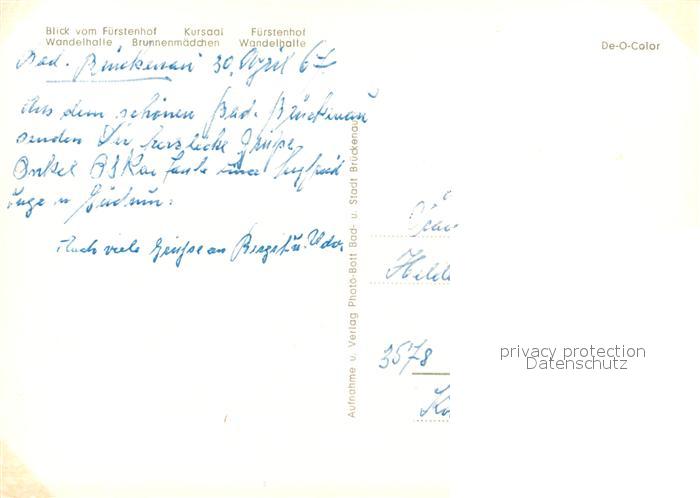 Blick vom Fürstenhof Kursaal Fürstenhof
Wandelhalle Brunnenmädchen Wandelhalle
De-O-Color
Bad. Brückenau 30. April 67
Aus dem schönen Bad. Brückenau
senden Dir herzliche Grüße
Onkel Oskar Tante und
Inge u Gudrun.
Auch viele Grüße an u. Udo
Aufnahme u. Verlag Photo-Bott Bad- u. Stadt Brückenau
3578
privacy protection
Datenschutz